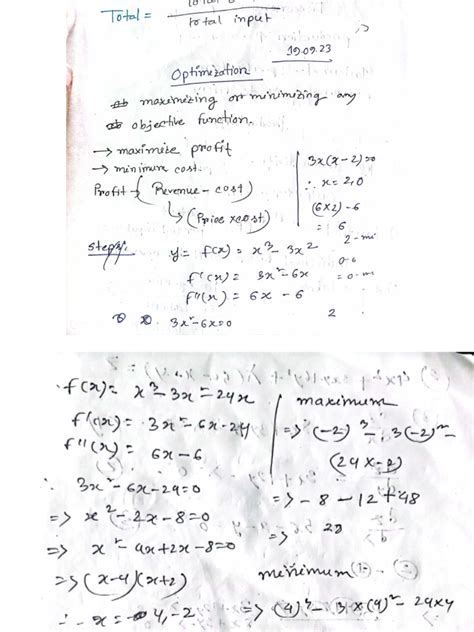 Total =
total input
19.09.23
Optimization
maximizing or minimizing any
objective function.
→ maximize profit
→ minimum cost.
Profit → (Revenue - cost)
↳ (Price × cost)
3x(x-2)=0
∴ x = 2,0
(6×2)-6
= 6
steps:
y = f(x) = x³ - 3x²
f'(x) = 3x² - 6x
f''(x) = 6x - 6
3x² - 6x = 0
2
f(x) = x³ - 3x² - 24x
f'(x) = 3x² - 6x - 24
f''(x) = 6x - 6
∴ 3x² - 6x - 24 = 0
=> x² - 2x - 8 = 0
=> x² - 4x + 2x - 8 = 0
=> (x-4)(x+2)
∴ x = 4, -2
maximum
=> (-2)³ - 3(-2)² -
(24×-2)
=> -8 - 12 + 48
=> 28
minimum
=> (4)³ - 3×(4)² - 24×4